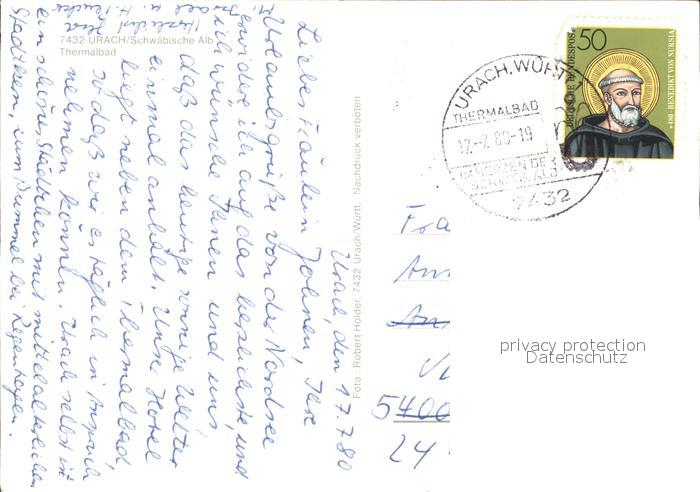 Urach, den 17.7.80
Liebes Fräulein Johnen, Ihre
Urlaubsgrüße von der Nordsee
erwidere ich auf das herzlichste, und
ich wünsche Ihnen und uns,
daß das heutige sonnige Wetter
einmal anhält. Unser Hotel
liegt neben dem Thermalbad,
so daß wir es täglich in Anspruch
nehmen können. Urach selbst ist
ein schönes Städtchen mit mittelalterlichem
Stadtkern, zum Bummel bei Regen
Herzlichst Ihre
7432 URACH/Schwäbische Alb
Thermalbad
Foto: Robert Holder, 7432 Urach/Württ. Nachdruck verboten
URACH, WÜRTT
THERMALBAD
17.-7.80-19
IM HERZEN DER
SCHWÄB. ALB
7432
50
DEUTSCHE BUNDESPOST
*480 · BENEDIKT VON NURSIA
Fra
An
An
5400
24
privacy protection
Datenschutz